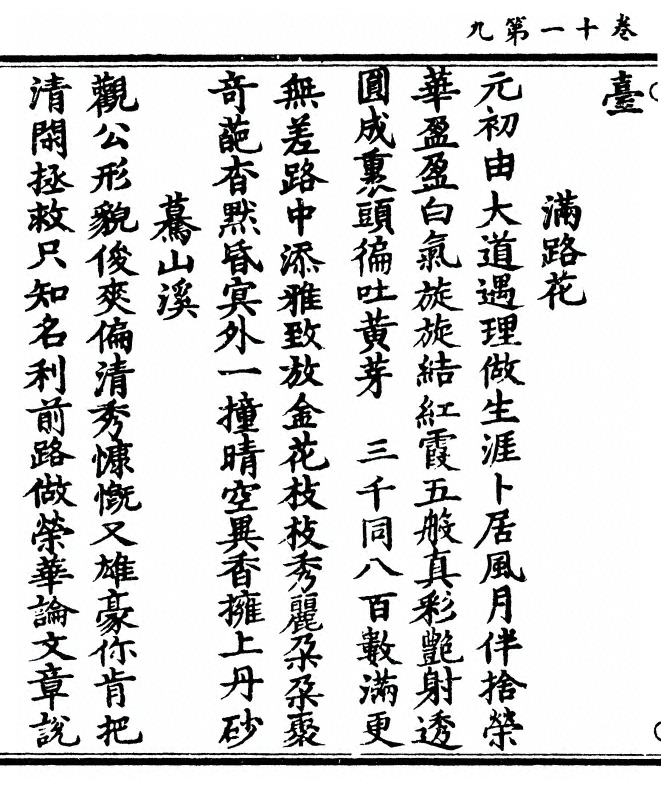 卷十一第九
臺
滿路花
元初由大道遇理做生涯卜居風月伴捨榮
華盈盈白氣旋旋結紅霞五般真彩艷射透
圓成裏頭徧吐黃芽　三千同八百數滿更
無差路中添雅致放金花枝枝秀麗朵朵聚
奇葩杳默昏冥外一撞晴空異香擁上丹砂
驀山溪
觀公形貌俊爽偏清秀慷慨又雄豪你肯把
清閑拯救只知名利前路做榮華論文章說